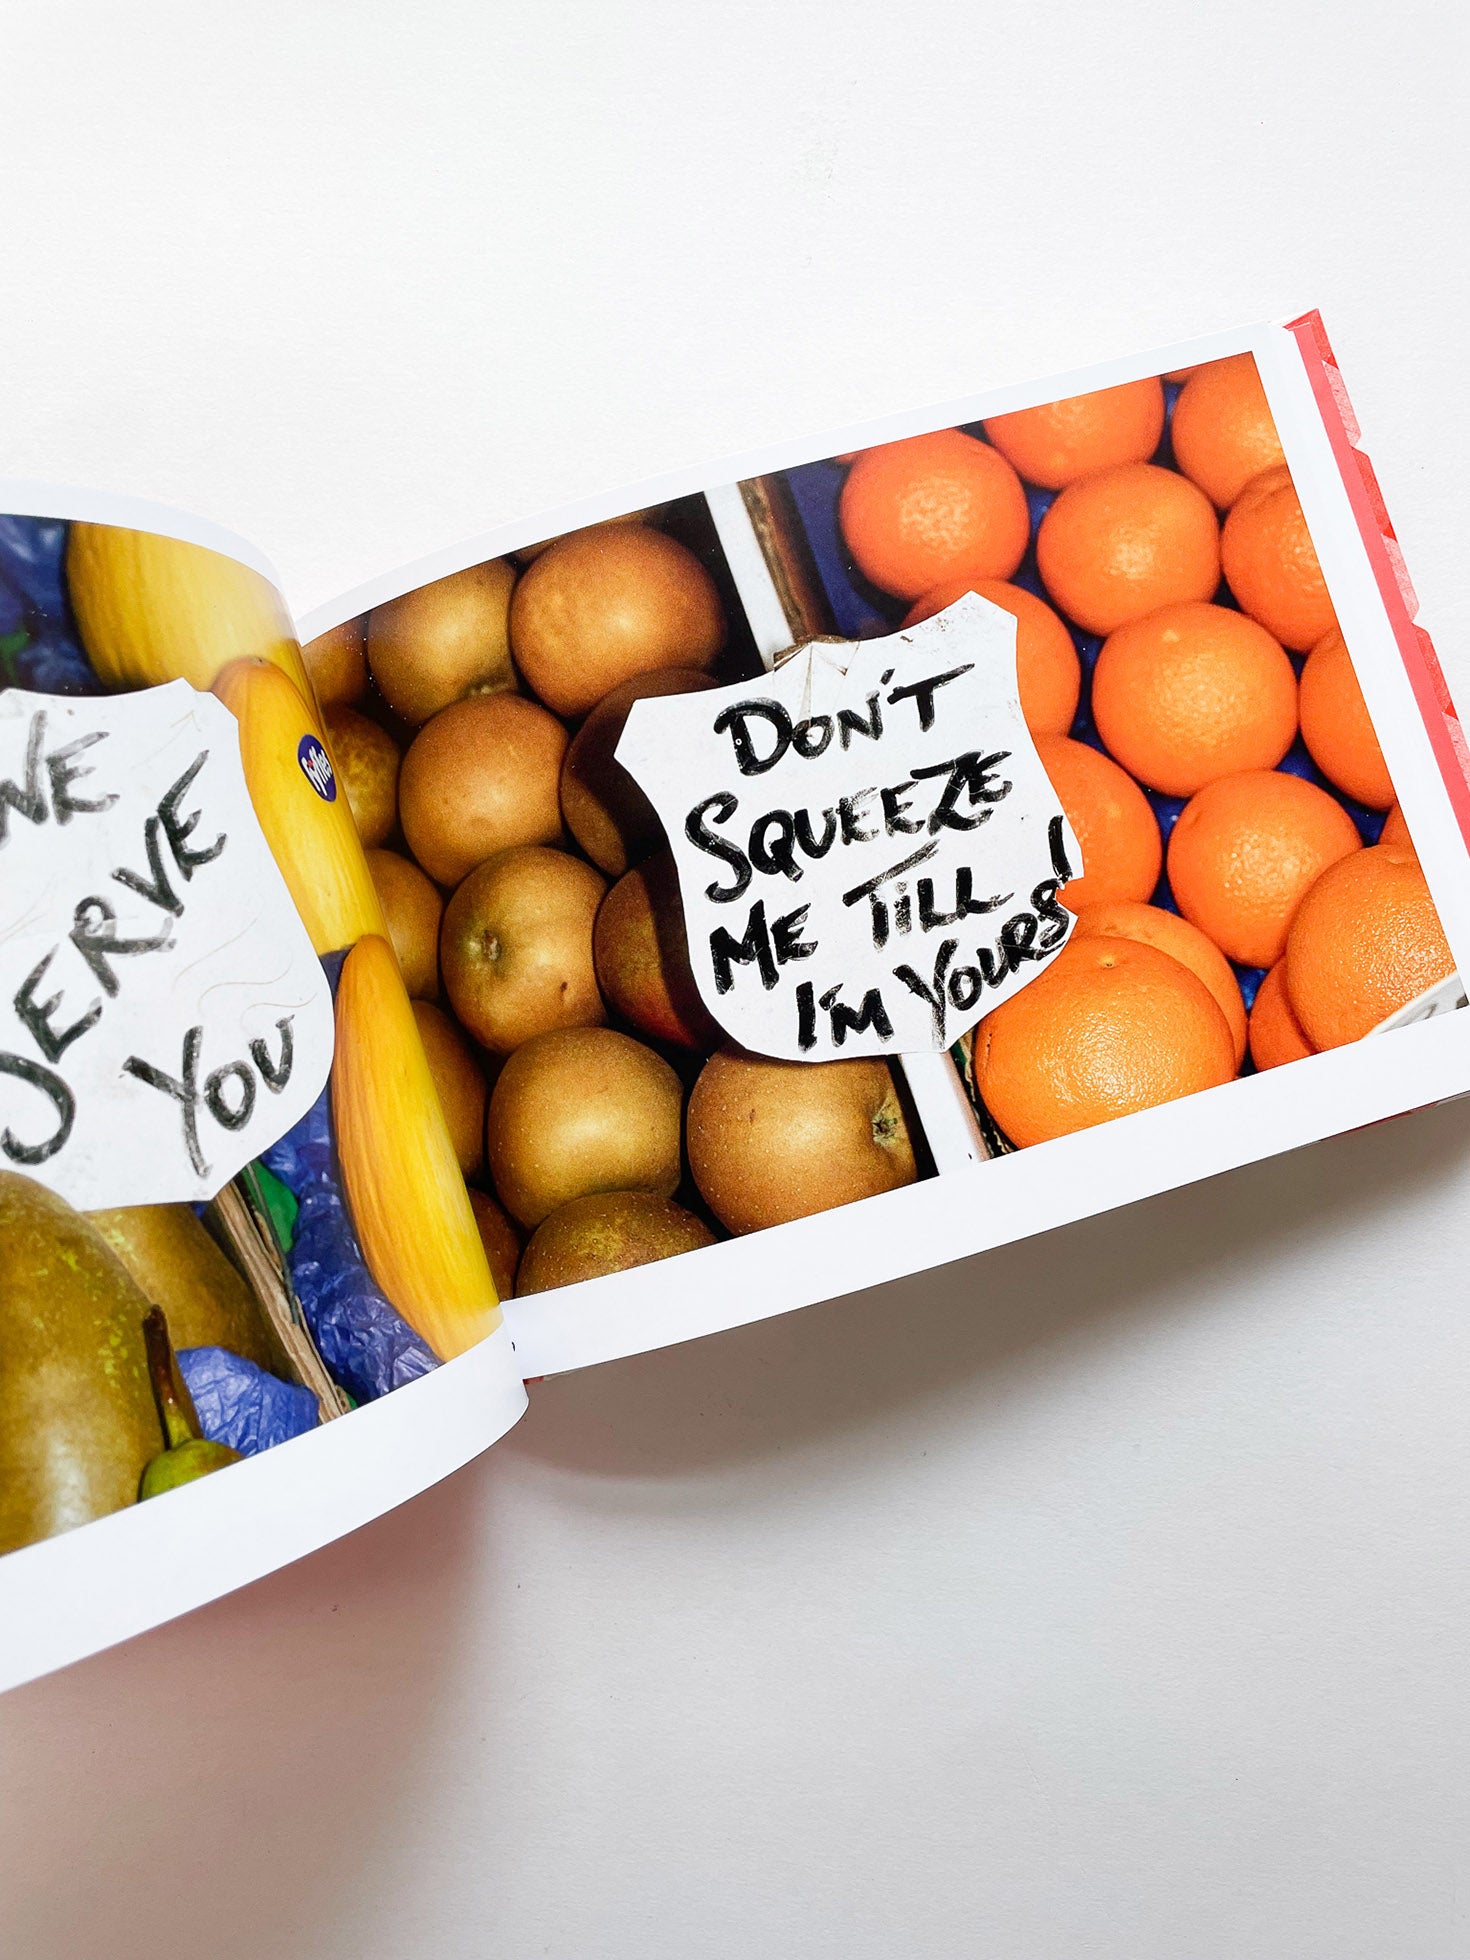 WE
SERVE
YOU
Fyffes
DON'T
SQUEEZE
ME TiLL
I'M YOURS!